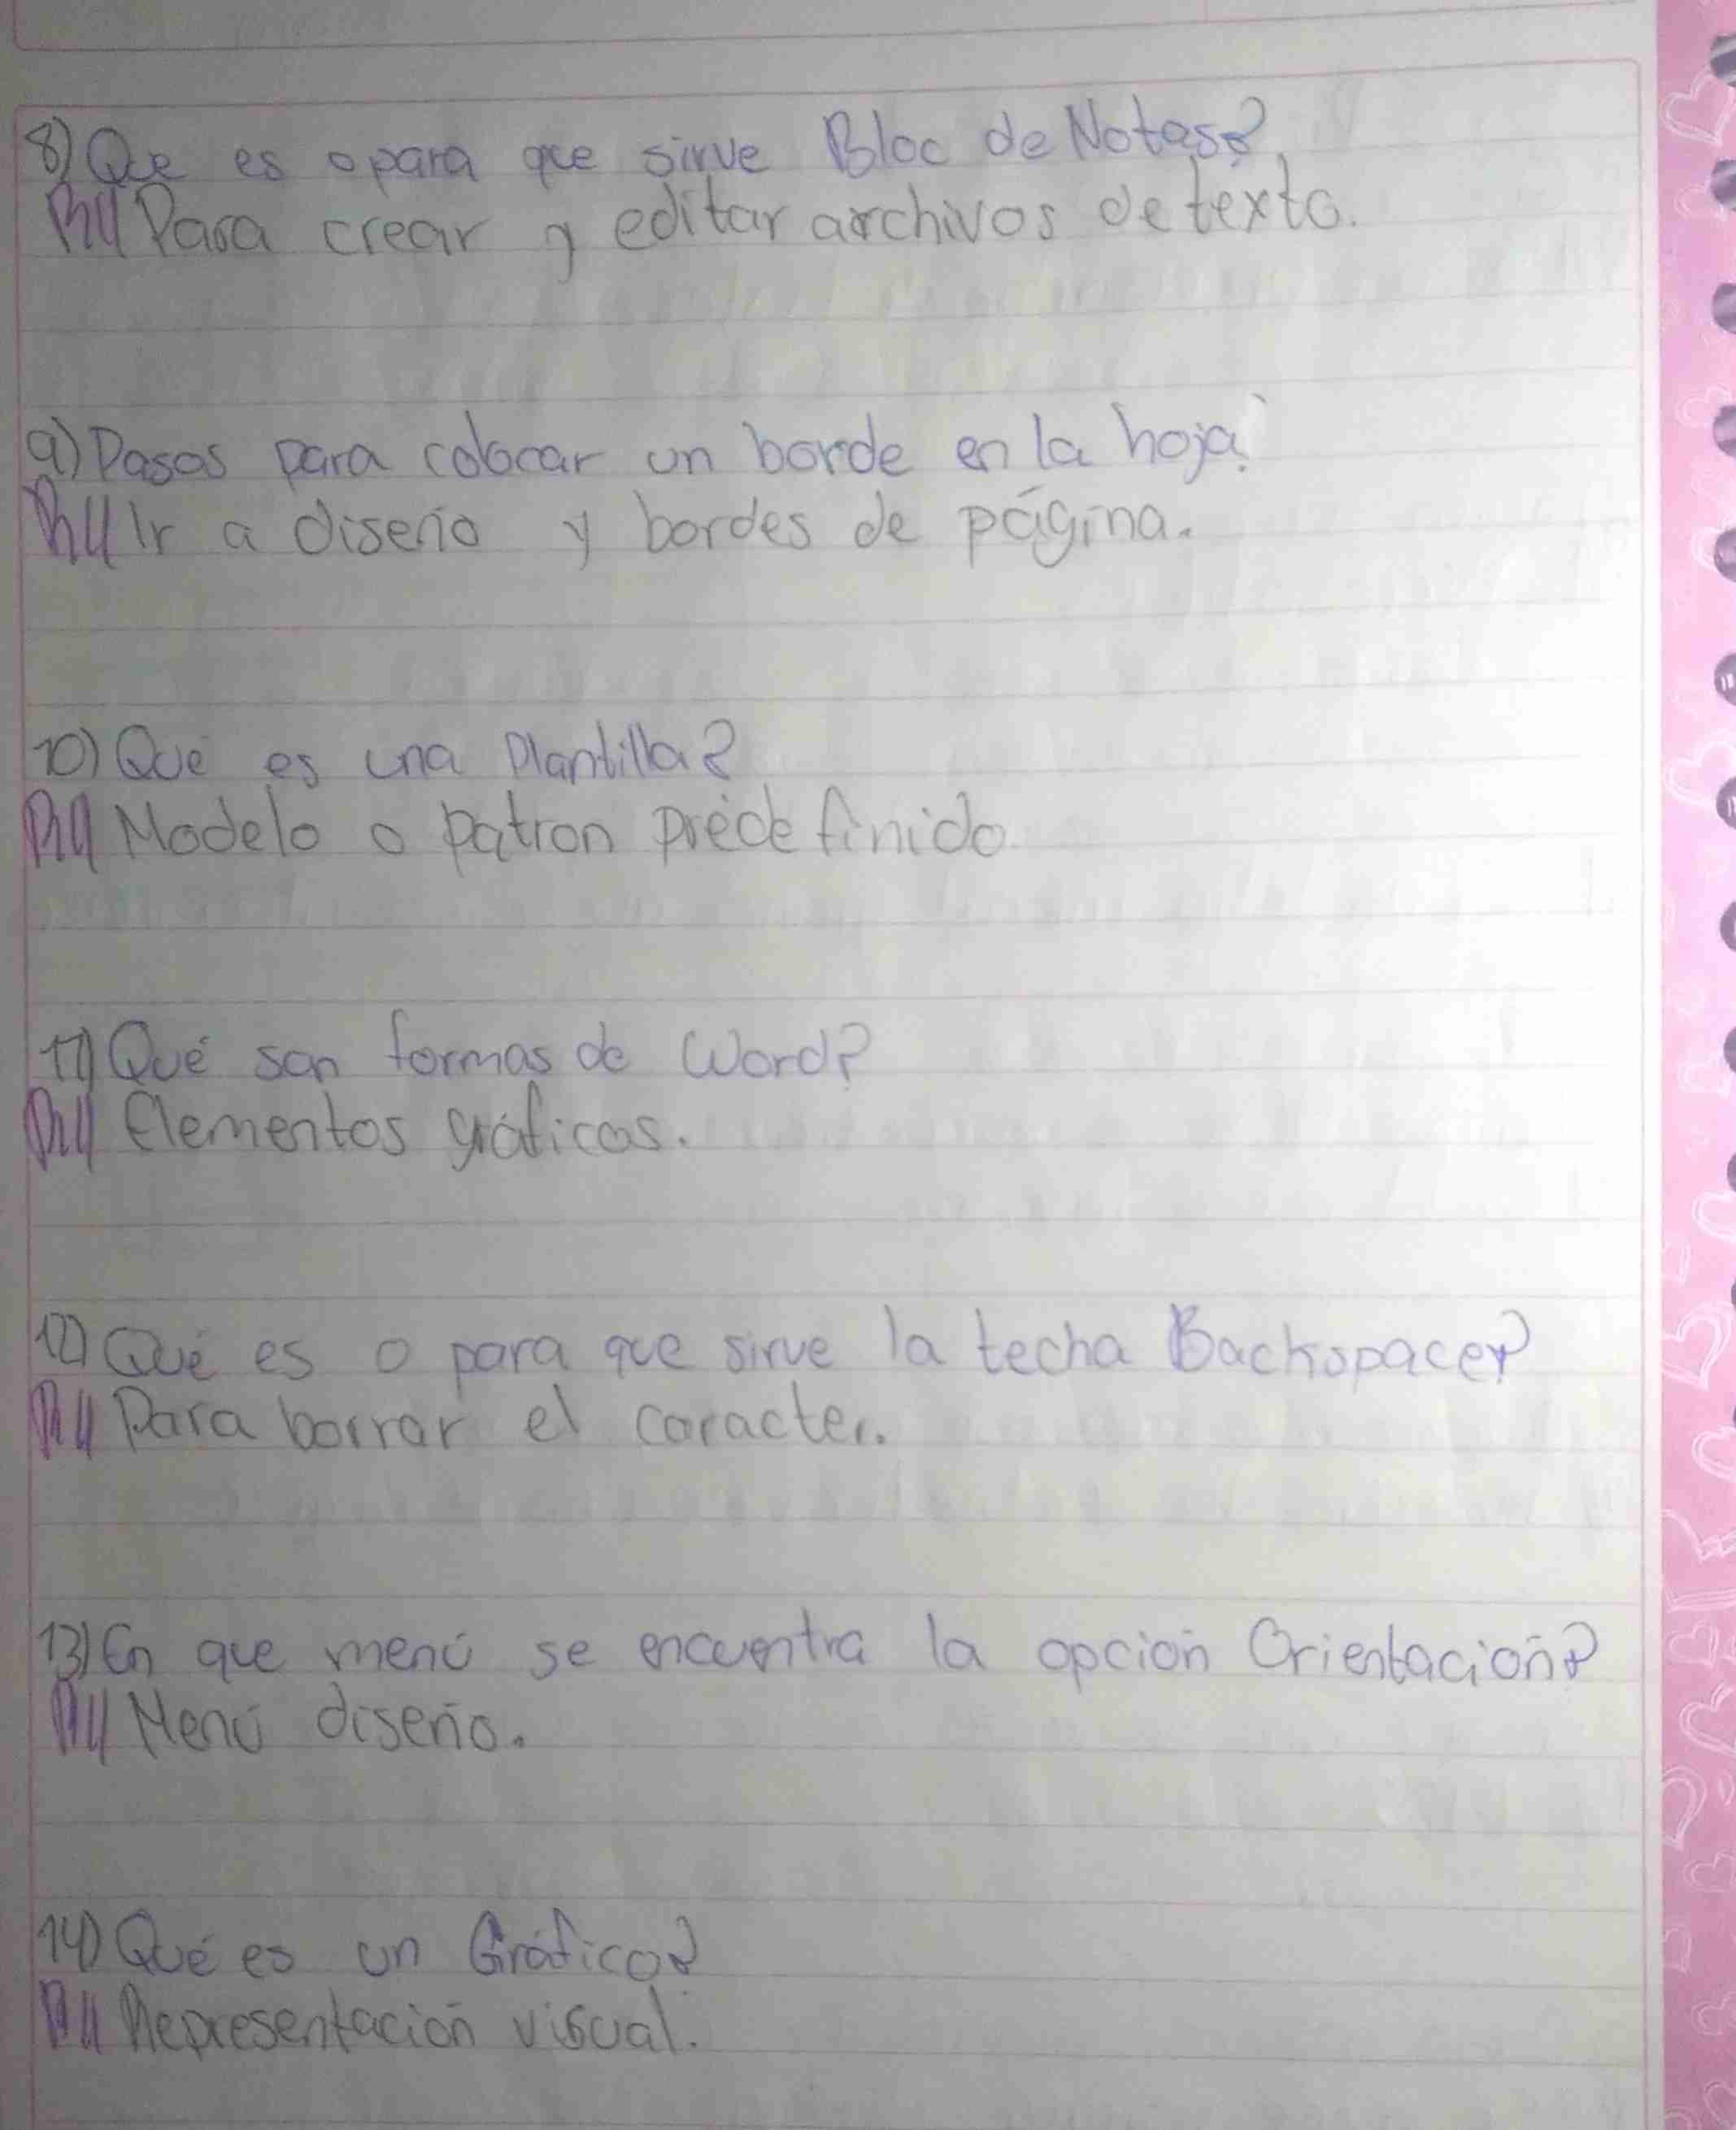 8) Que es o para que sirve Bloc de Notas?
R// Para crear y editar archivos de texto.
9) Pasos para colocar un borde en la hoja?
R// Ir a diseño y bordes de página.
10) Qué es una Plantilla?
R// Modelo o patron predefinido
11) Qué son formas de Word?
R// Elementos gráficos.
12) Qué es o para que sirve la techa Backspace?
R// Para borrar el caracter.
13) En que menú se encuentra la opción Orientación?
R// Menú diseño.
14) Qué es un Gráfico?
R// Representación visual.